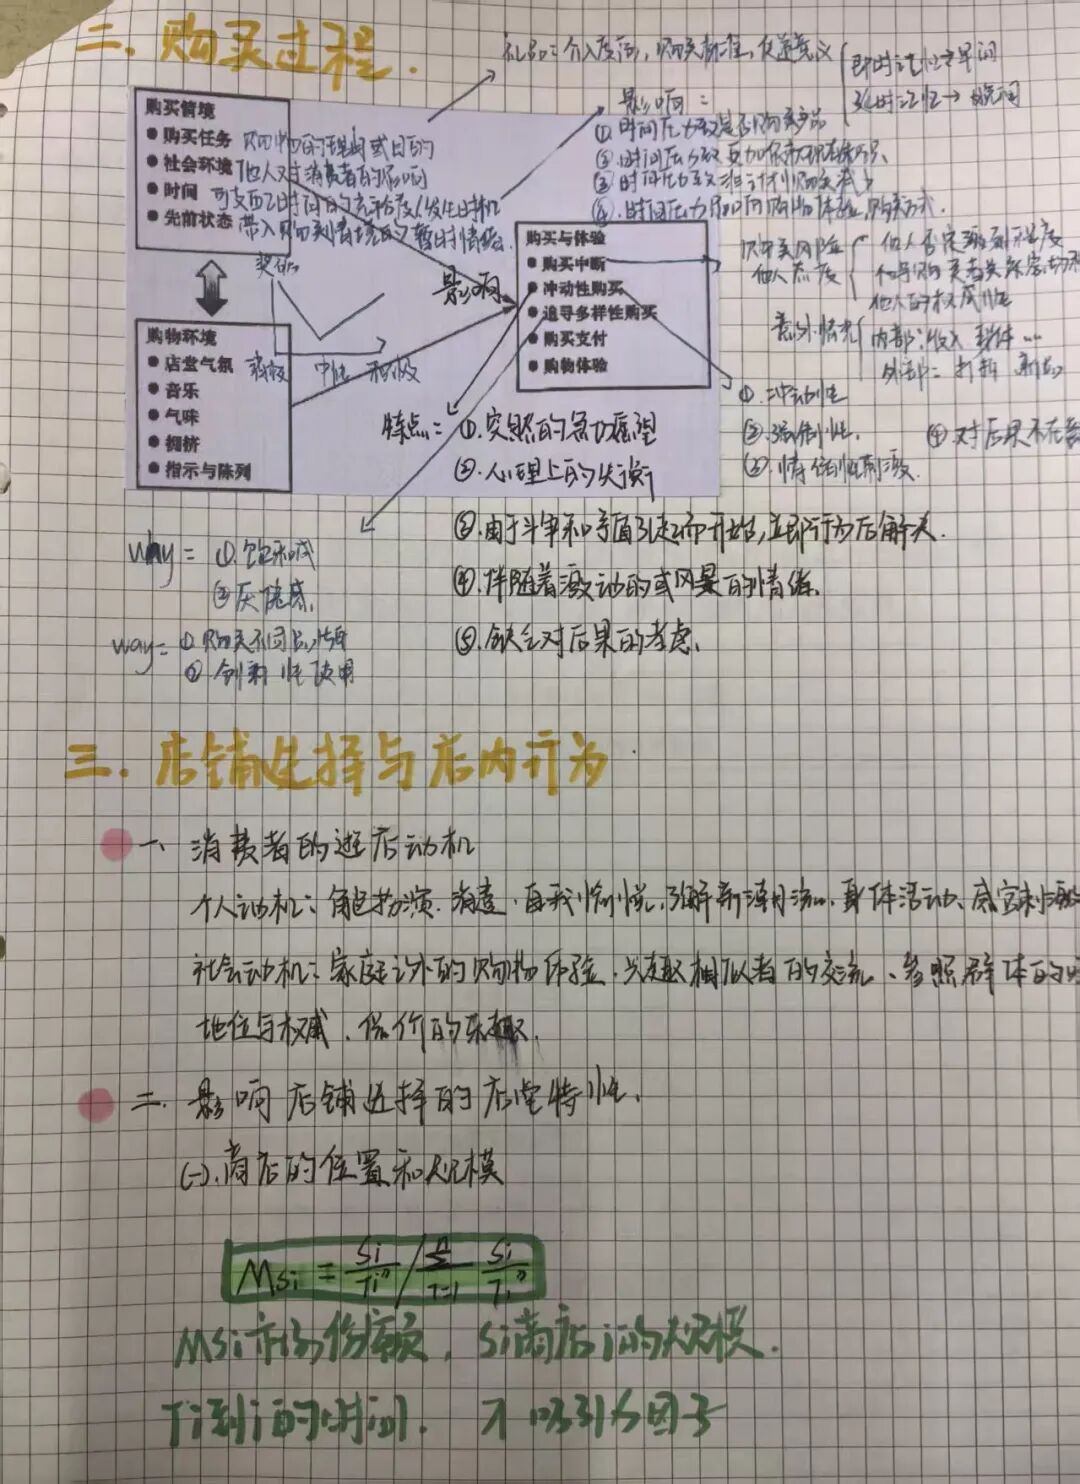 二、购买过程.
礼品：介入度高，购买标准，促进意义
即时记忆
延时记忆→
影响：
购买情境
● 购买任务 购物的理由或目的
● 社会环境 他人对消费者的影响
● 时间 可支配时间的充裕度/发生时机
● 先前状态 带入购买情境的暂时情绪
① 时间压力
② 时间压力
③ 时间压力
④ 时间压力影响购物体验、购买方式.
影响
购买与体验
● 购买中断
● 冲动性购买
● 追寻多样性购买
● 购买支付
● 购物体验
购买风险
他人态度
他人否定激烈程度
他人的权威性
意外情况
内部：收入
外部：打折
购物环境
● 店堂气氛
● 音乐
● 气味
● 拥挤
● 指示与陈列
消极 中性 积极
①.冲动性
②.强制性.
③.情绪性刺激.
④.对后果不在意
特点：①.突然的急切愿望
②.心理上的失衡
③.由于斗争和矛盾引起而开始,立即行为后解决.
④.伴随着激动的或风暴的情绪.
⑤.缺乏对后果的考虑.
why= ①.饱和感
②厌倦感.
way= ①购买不同品牌
② 创新性使用
三.店铺选择与店内行为
一、消费者的逛店动机
个人动机：角色扮演、消遣、自我愉悦、了解新潮流、身体活动、感官刺激
社会动机：家庭以外的购物体验、兴趣相似者的交流、参照群体的
地位与权威、侃价的乐趣.
二.影响店铺选择的店堂特性.
(一).商店的位置和规模
Msi = Si/Tiⁿ / n Σ i=1 Si/Tiⁿ
Msi市场份额，Si商店i的规模.
Ti到i的时间. 入吸引力因子